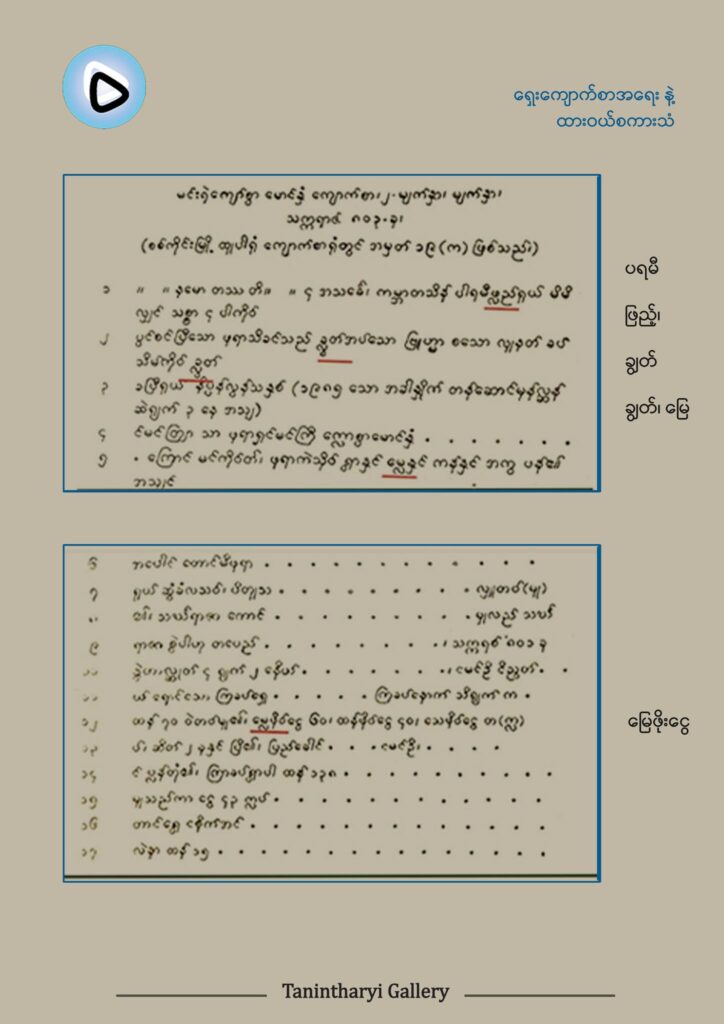 ရှေးကျောက်စာအရေး နဲ့
ထားဝယ်စကားသံ
မင်းရဲကျော်စွာ မောင်နှံ ကျောက်စာ၊ ၂-မျက်နှာ၊ မျက်နှာ၊
သက္ကရာဇ် ၈၀၃-ခု၊
(စစ်ကိုင်းမြို့ ထူပါရုံ ကျောက်စာရုံတွင် အမှတ် ၁၉ (က) ဖြစ်သည်။)
၁ ။ ။ နမော တဿ တိ။ ။ ၄ အသင်္ခေ၊ ကမ္ဘာတသိန် ပါရမီဖ္လည်ရှယ် မိမိ
လျှင် သစ္စာ ၄ ပါကိုဝ်
၂ ပွင်စင်ပြီသော ဖုရာသိခင်သည် ခ္လွတ်အပ်သော ဗြူဟ္မာ စသော လူနတ် ခပ်
သိမ်ကိုဝ် ခ္လွတ်
၃ ခပြီရှယ် နိဗ္ဗန်လွန်သနှစ် (၁၉၈၅ သော အခါ၌ တန်ဆောင်မုန်လ္ဆန်
ဆဲရျက် ၃ နေ့ အသျှ)
၄ င်မင်တြာ သာ ဖုရာရှင်မင်ကြီ က္လောစွာမောင်နှံ . . . . . . .
၅ . ကြောင် မင်ကိုဝ်တ်၊ ဖုရာကဲသိုဝ် ရွာနှင် မ္လေနှင် ကန်နှင် အကွ ပန်၏
အသျှင်
ပရမီ
ဖြည့်၊
ချွတ်
ချွတ်၊ မြေ
၆ အပေါင် တောင်မီဖုရာ . . . . . . . . . . . .
၇ ရှယ် ဆွံခံလသဝ်၊ ပိတျသ . . . . . . . . . လှူတဝ်(မူ)
၈ ၏၊ သင်္ဃရာဇာ ကောင် . . . . . . . . မူလည် သင်္ဃ
၉ ရာဇာ စွဲပါဟု တပေည် . . . . . . . . ၊ သက္ကရစ် ၈၀၁ ခု
၁၂ ထန် ၇၀ ဝဲတဝ်မူ၏၊ မ္လေဖိုဝ်ငွေ ၆၀၊ ထန်ဖိုဝ်ငွေ ၄၀၊ သေဖိုဝ်ငွေ တ(က္လ)
၁၃ ယ်၊ ဆိတ် ၂ ခုနှင် ပြီ၏၊ ပြည်ခေါင် . . . ငမင်ဦ၊ . . . .
၁၄ င် ပ္လန်တုံ၏၊ ကြာခပ်ရွာပါ ထန် ၁၃၈ . . . . . . . . . .
၁၅ မူသည်ကာ ငွေ ၄၃ က္လပ် . . . . . . . . . . . . .
၁၆ တာင်ရွှေ ငစိုက်အင် . . . . . . . . . . . . . .
၁၇ လဲနှာ ထန် ၁၅ . . . . . . . . . . . . . . .
မြေဖိုးငွေ
Tanintharyi Gallery